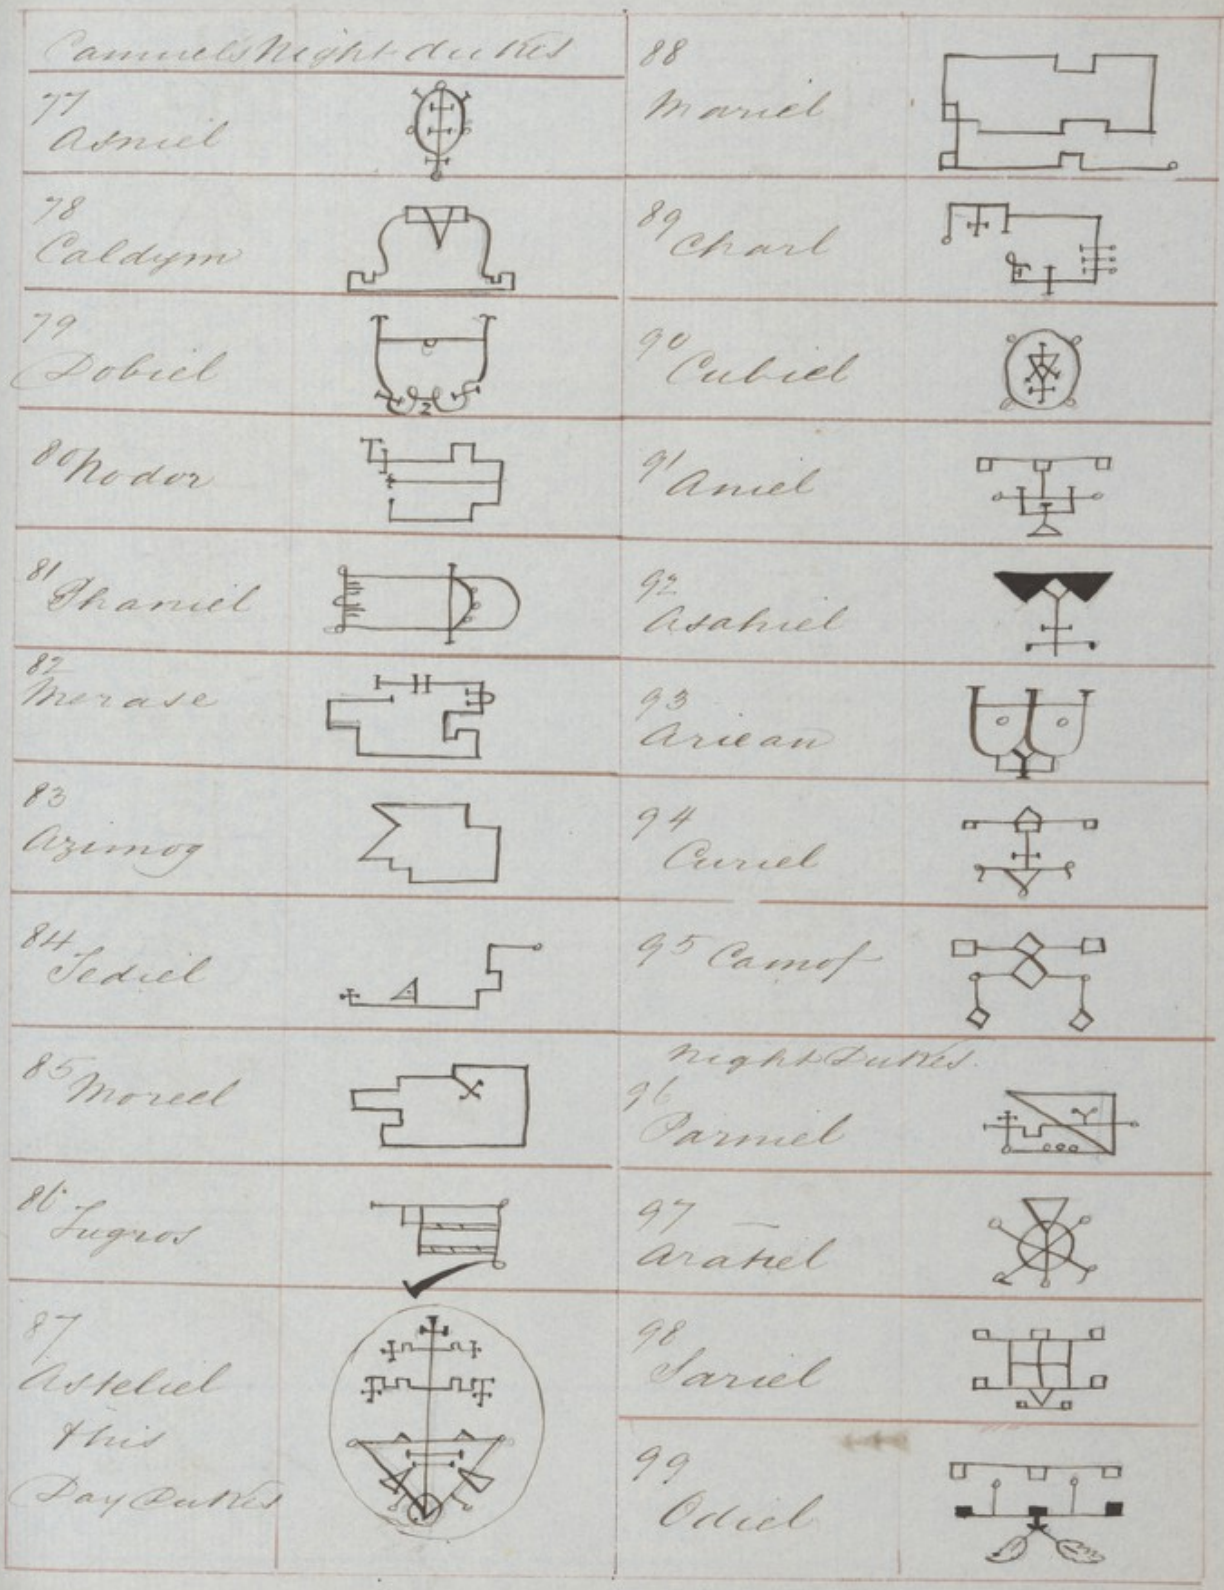 Camuels Night dukes
77
Asniel
78
Caldym
79
Dobiel
80 Nodor
81
Phaniel
82
Merase
83
Azimog
84
Tediel
85 Moreel
86
Tugros
87
Asteliel
this
Day Dukes
88
Mariel
89
Charl
90
Cubiel
91
Aniel
92
Asahiel
93
Ariean
94
Curiel
95 Camof
Night Dukes.
96
Parniel
97
Aratiel
98
Sariel
99
Odiel